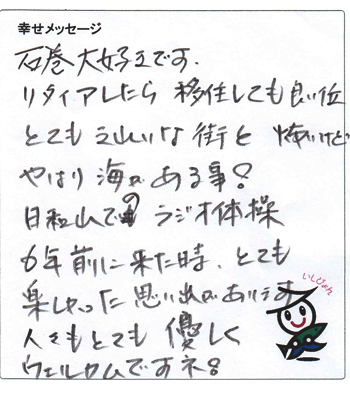 幸せメッセージ
石巻大好きです.
リタイアしたら 移住しても良い位
とても な街と 怖いけど
やはり海がある事!
日和山での ラジオ体操
6年前に来た時、とても
楽しかった思い出があります
人々もとても優しく
ウェルカムですネ!
いしぴょん